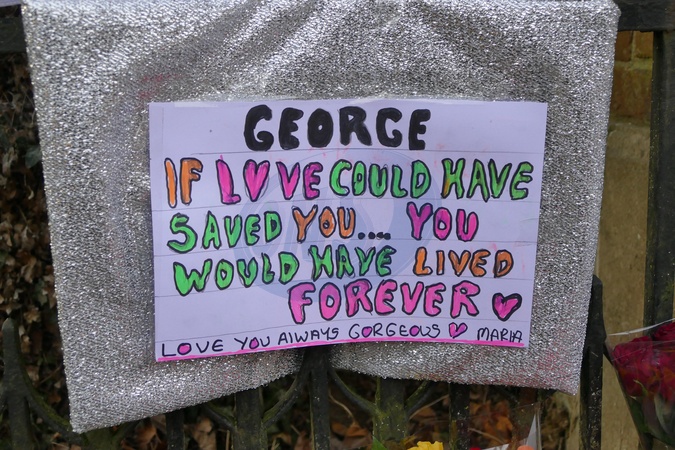 GEORGE
IF LOVE COULD HAVE
SAVED YOU.... YOU
WOULD HAVE LIVED
FOREVER
LOVE YOU AlWAYS GORGEOUS MARIA